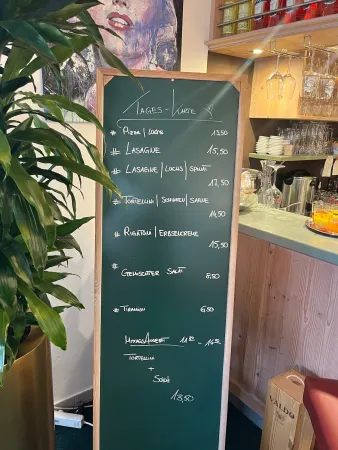 Tages-Karte
# Pizza | Lachs 13,50
# Lasagne 15,50
# Lasagne | Lachs | Spinat
17,50
# Tortellini | Schinken | Sahne
14,50
# Rigatoni | Erbsencreme
15,50
# Gemischter Salat 8,50
# Tiramisu 6,50
Mittagsangebot 11:30 - 14:30
Tortellini
+
Salat
13,50
VALDO